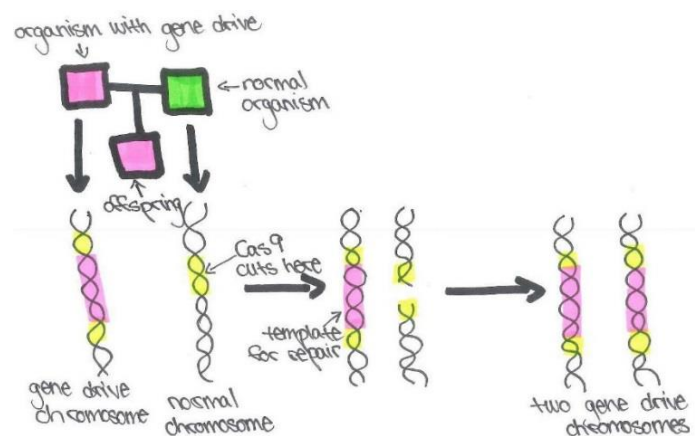 organism with gene drive
normal
organism
offspring
Cas9
cuts here
template
for repair
gene drive
chromosome
normal
chromosome
two gene drive
chromosomes